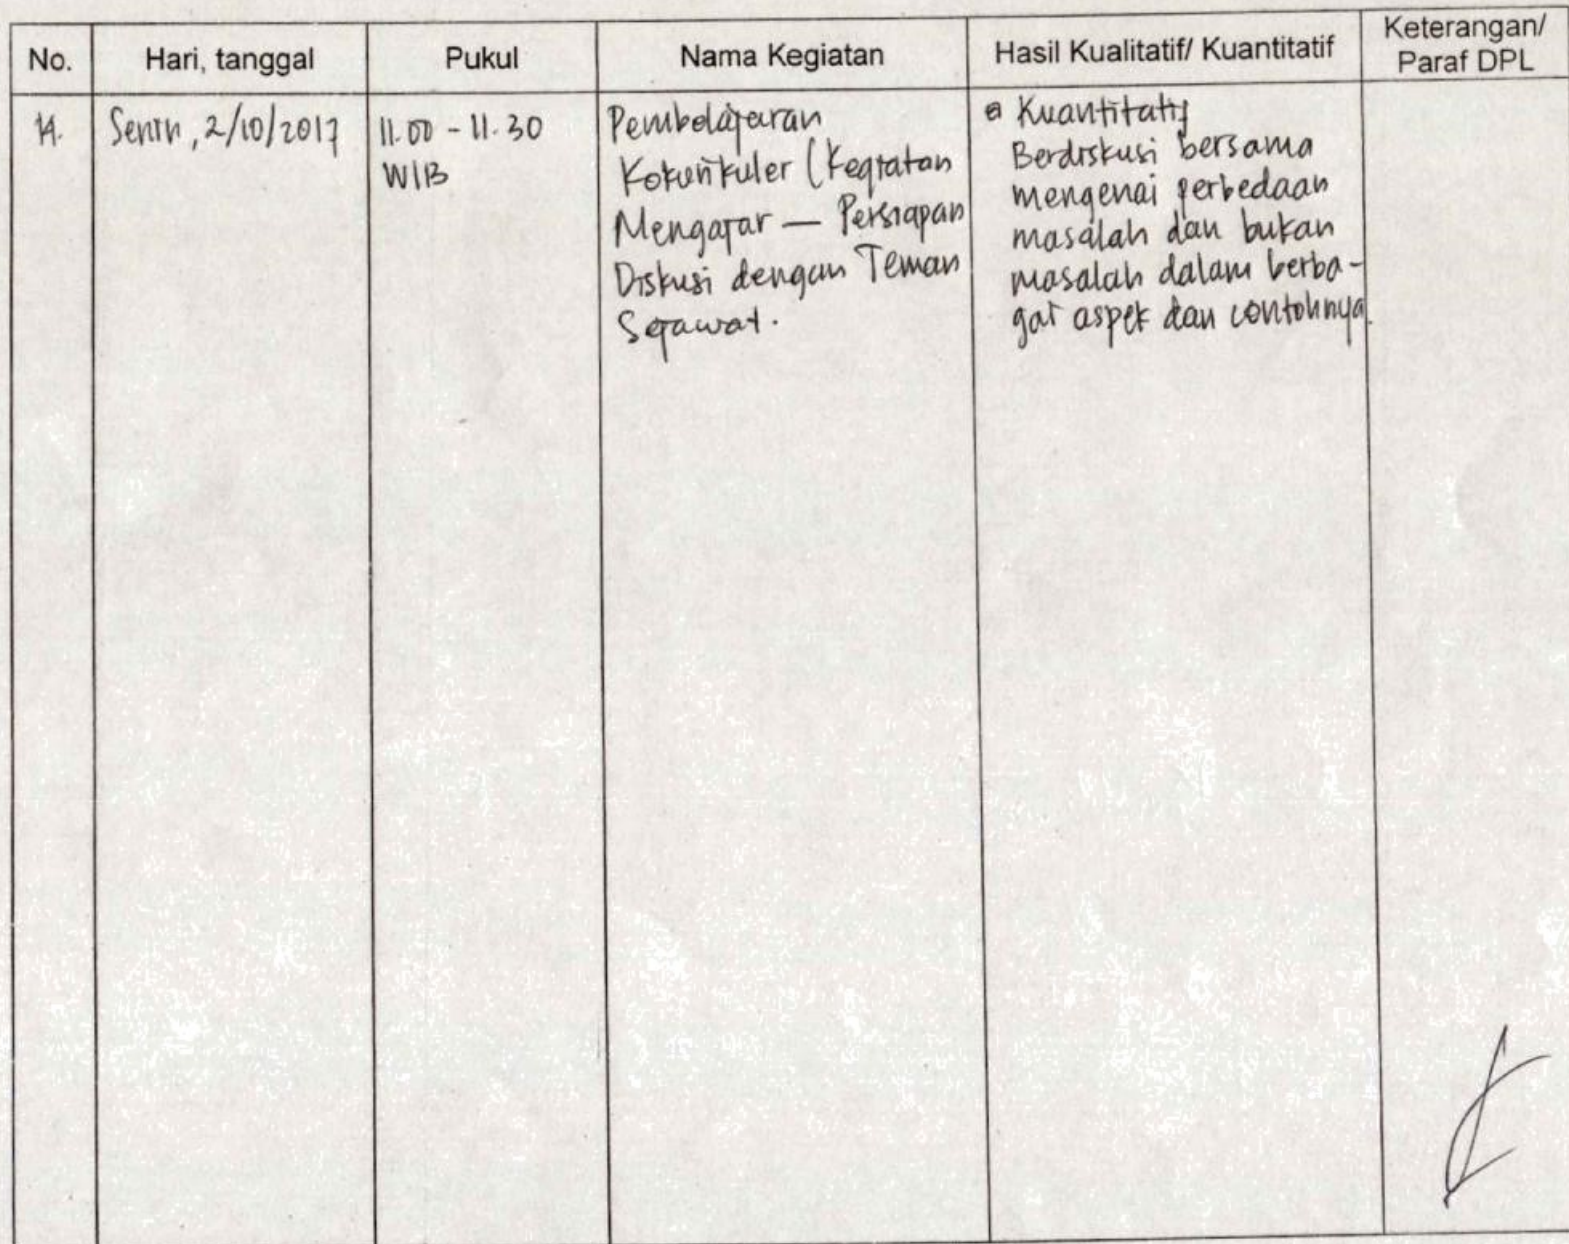 No.
Hari, tanggal
Pukul
Nama Kegiatan
Hasil Kualitatif/ Kuantitatif
Keterangan/
Paraf DPL
14.
Senin, 2/10/2017
11.00 - 11.30
WIB
Pembelajaran
Kokurikuler (Kegiatan
Mengajar — Persiapan
Diskusi dengan Teman
Sejawat.
Kuantitatif
Berdiskusi bersama
mengenai perbedaan
masalah dan bukan
masalah dalam berba-
gai aspek dan contohnya.